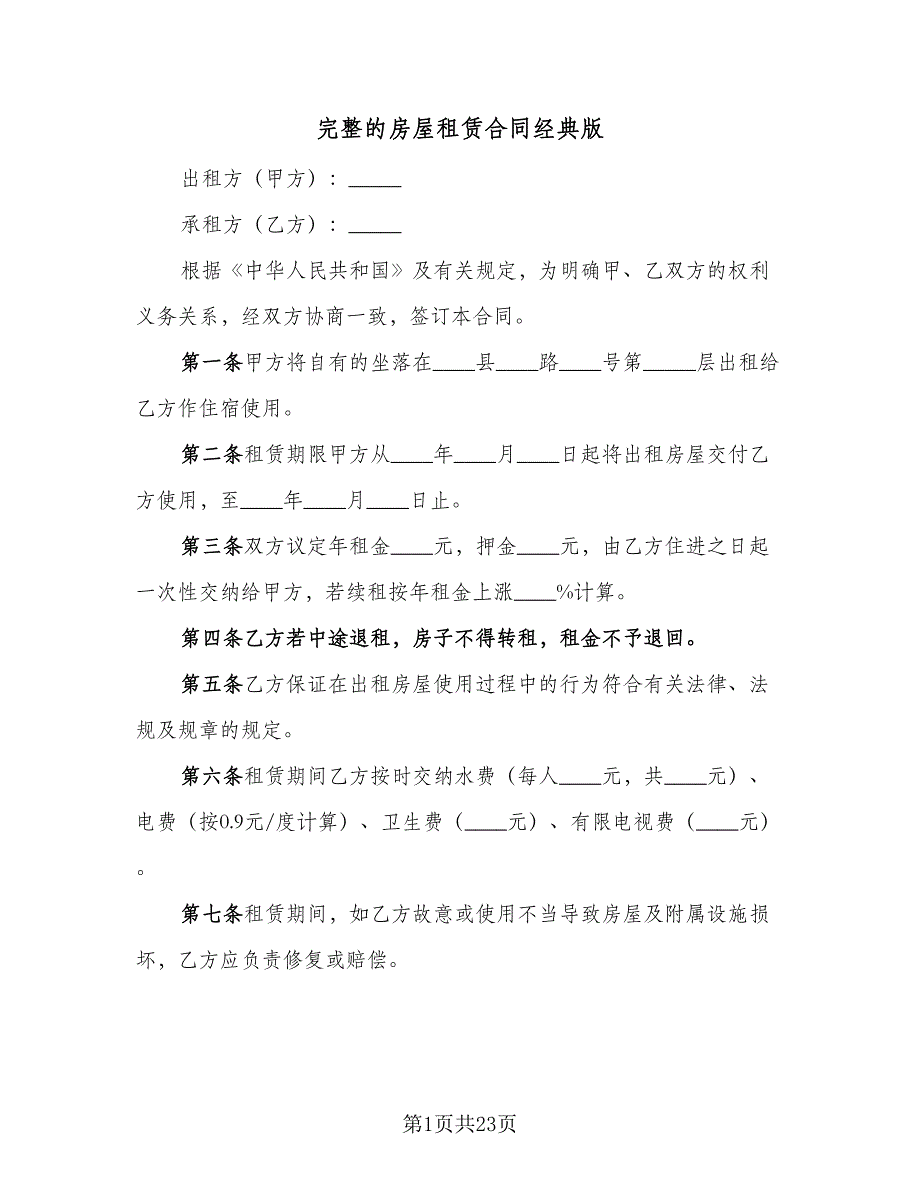 完整的房屋租赁合同经典版
出租方（甲方）：_____
承租方（乙方）：_____
根据《中华人民共和国》及有关规定，为明确甲、乙双方的权利
义务关系，经双方协商一致，签订本合同。
第一条甲方将自有的坐落在____县____路____号第_____层出租给
乙方作住宿使用。
第二条租赁期限甲方从____年____月____日起将出租房屋交付乙
方使用，至____年____月____日止。
第三条双方议定年租金____元，押金____元，由乙方住进之日起
一次性交纳给甲方，若续租按年租金上涨____%计算。
第四条乙方若中途退租，房子不得转租，租金不予退回。
第五条乙方保证在出租房屋使用过程中的行为符合有关法律、法
规及规章的规定。
第六条租赁期间乙方按时交纳水费（每人____元，共____元）、
电费（按0.9元/度计算）、卫生费（____元）、有限电视费（____元）
。
第七条租赁期间，如乙方故意或使用不当导致房屋及附属设施损
坏，乙方应负责修复或赔偿。
第1页共23页